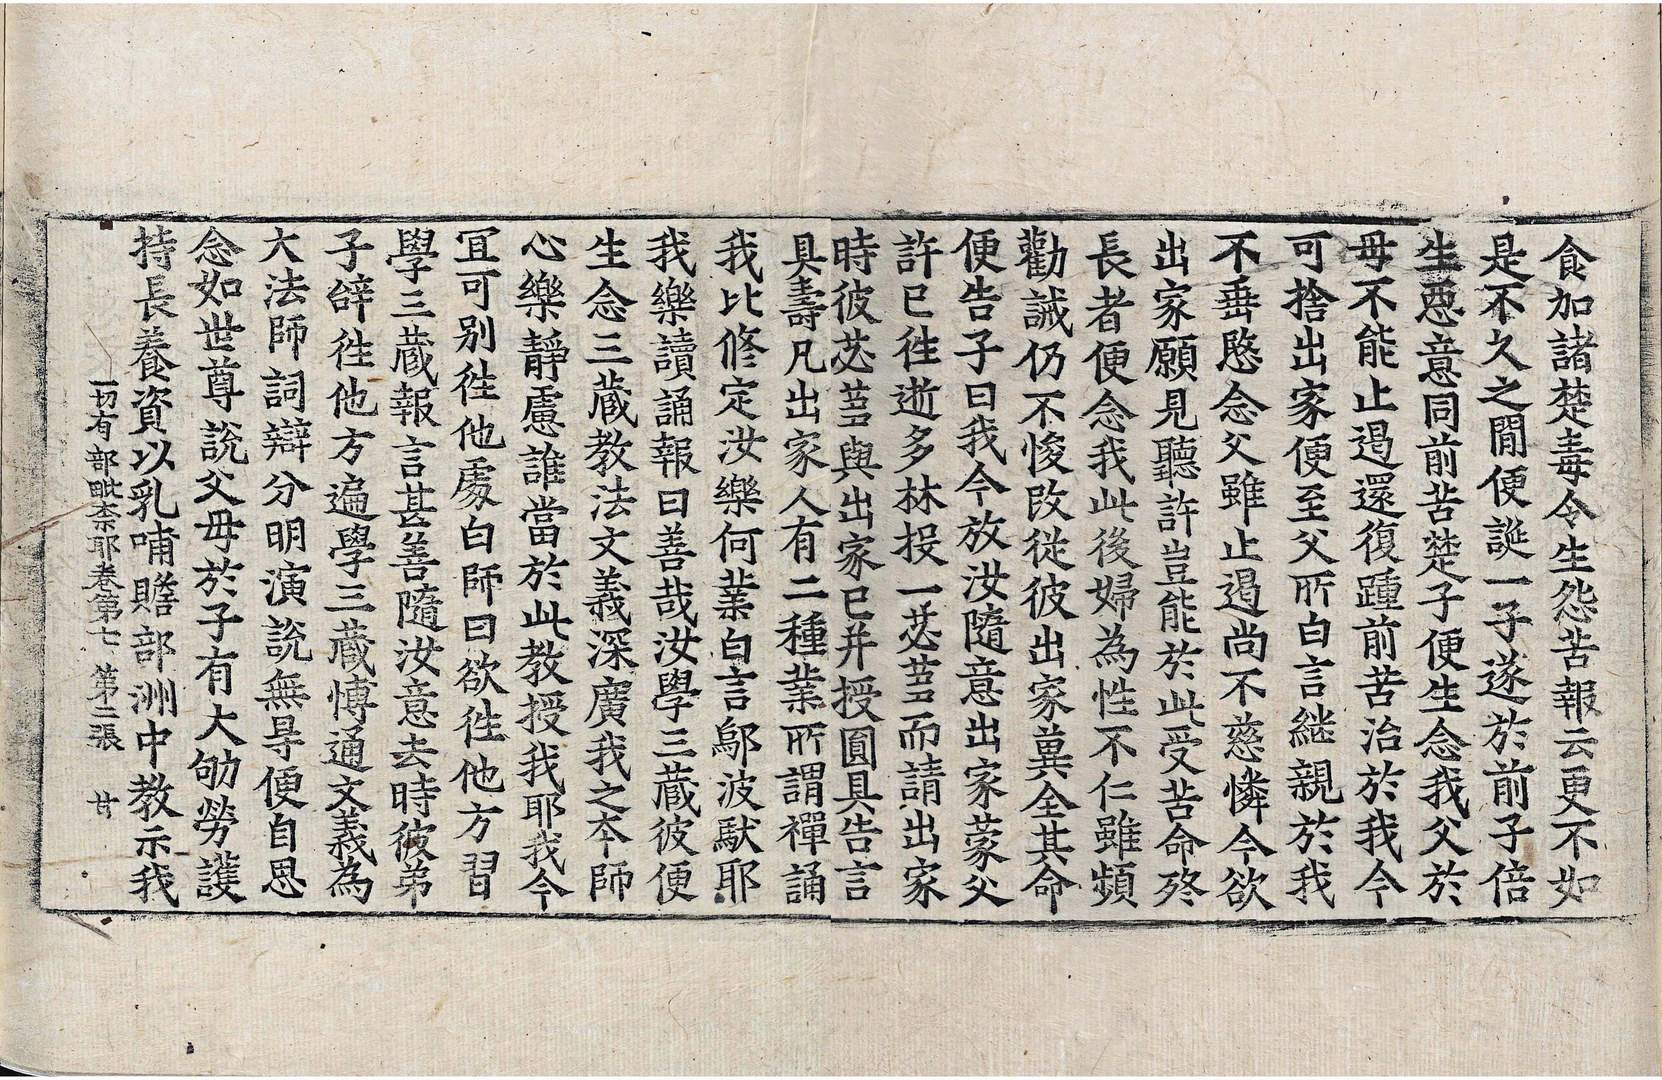 食加諸楚毒令生怨苦報云更不如
是不久之閒便誕一子遂於前子倍
生惡意同前苦楚子便生念我父於
母不能止遏還復踵前苦治於我今
可捨出家便至父所白言継親於我
不垂愍念父雖止遏尚不慈憐今欲
出家願見聽許豈能於此受苦命終
長者便念我此後婦為性不仁雖頻
勸誡仍不悛改從彼出家冀全其命
便告子曰我今放汝隨意出家蒙父
許已徃逝多林投一苾芻而請出家
時彼苾芻與出家已并授圓具告言
具壽凡出家人有二種業所謂禪誦
我比修定汝樂何業白言鄔波馱耶
我樂讀誦報曰善哉汝學三藏彼便
生念三藏教法文義深廣我之夲師
心樂靜慮誰當於此教授我耶我今
冝可別徃他處白師曰欲徃他方習
學三藏報言甚善隨汝意去時彼弟
子辝徃他方遍學三藏博通文義為
大法師詞辯分明演說無㝵便自思
念如世尊說父母於子有大劬勞護
持長養資以乳哺贍部洲中教示我
一切有部毗柰耶卷第七　第二張　廿